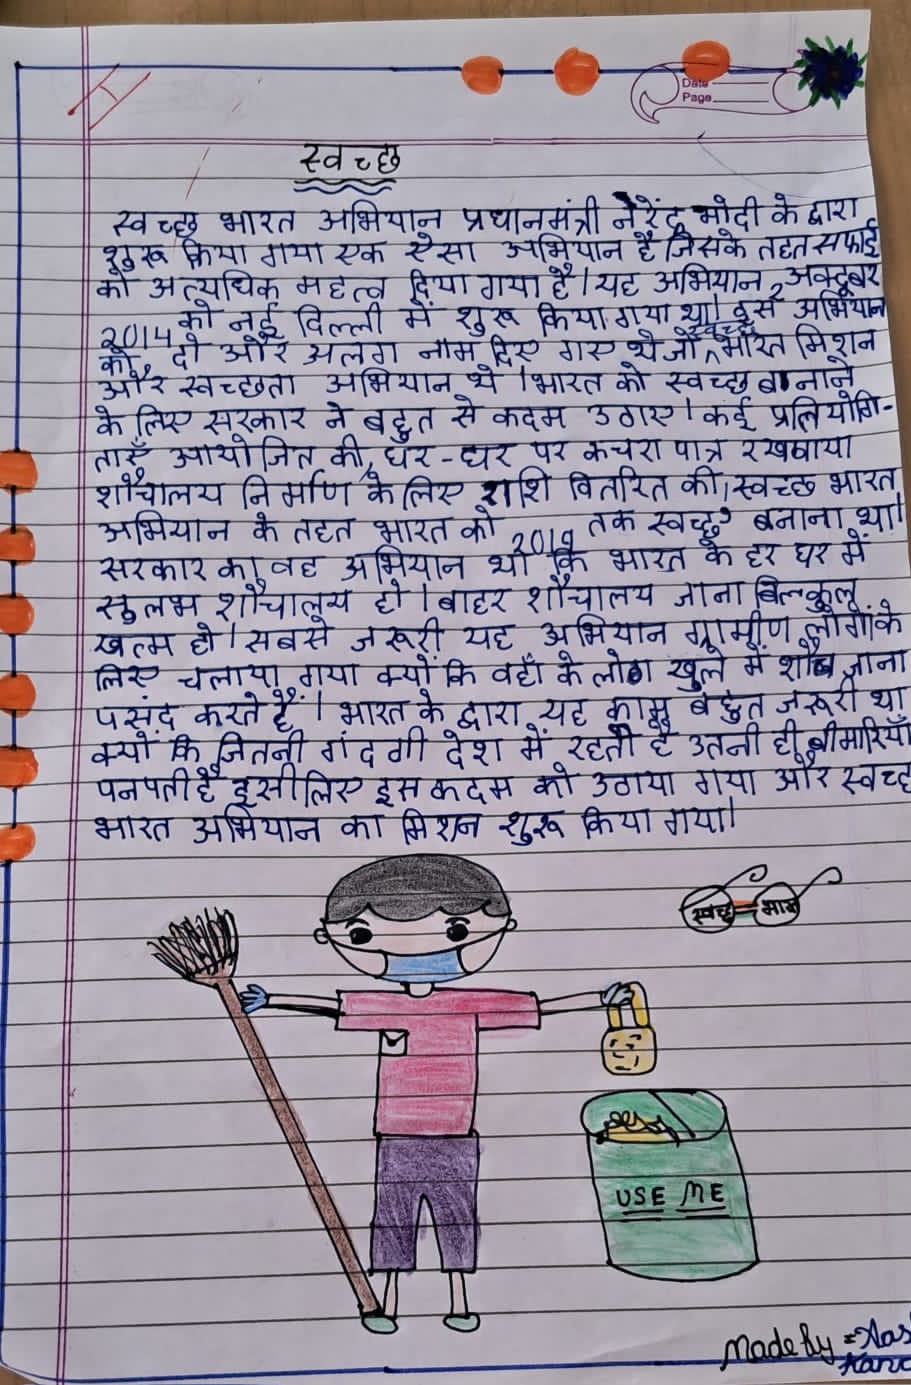 Date
Page
स्वच्छ
स्वच्छ भारत अभियान प्रधानमंत्री नरेंद्र मोदी के द्वारा
शुरू किया गया एक ऐसा अभियान है जिसके तहत सफाई
को अत्यधिक महत्व दिया गया है। यह अभियान 2 अक्टूबर
2014 को नई दिल्ली में शुरू किया गया था। इस अभियान
को दो और अलग नाम दिए गए थे जो स्वच्छ भारत मिशन
और स्वच्छता अभियान थे। भारत को स्वच्छ बनाने
के लिए सरकार ने बहुत से कदम उठाए। कई प्रतियोगि-
ताएँ आयोजित की, घर-घर पर कचरा पात्र रखवाया
शौचालय निर्माण के लिए राशि वितरित की। स्वच्छ भारत
अभियान के तहत भारत को 2019 तक स्वच्छ बनाना था।
सरकार का वह अभियान था कि भारत के हर घर में
सुलभ शौचालय हो। बाहर शौचालय जाना बिल्कुल
खत्म हो। सबसे जरूरी यह अभियान ग्रामीण लोगों के
लिए चलाया गया क्यों कि वहाँ के लोग खुले में शौच जाना
पसंद करते हैं। भारत के द्वारा यह काम बहुत जरूरी था
क्यों कि जितनी गंदगी देश में रहती है उतनी ही बीमारियाँ
पनपती है इसीलिए इस कदम को उठाया गया और स्वच्छ
भारत अभियान का मिशन शुरू किया गया।
स्वच्छ भारत
USE ME
Made By =